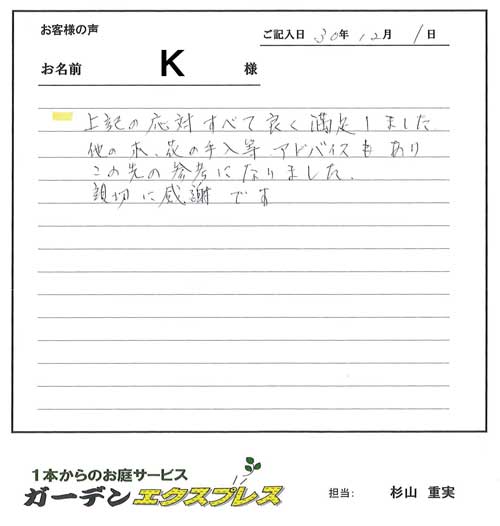 お客様の声
ご記入日 30年 12月 1日
お名前 K 様
上記の応対すべて良く満足しました
他の木、花の手入等 アドバイスもあり
この先の参考になりました.
親切に感謝です
1本からのお庭サービス
ガーデンエクスプレス
担当: 杉山 重実